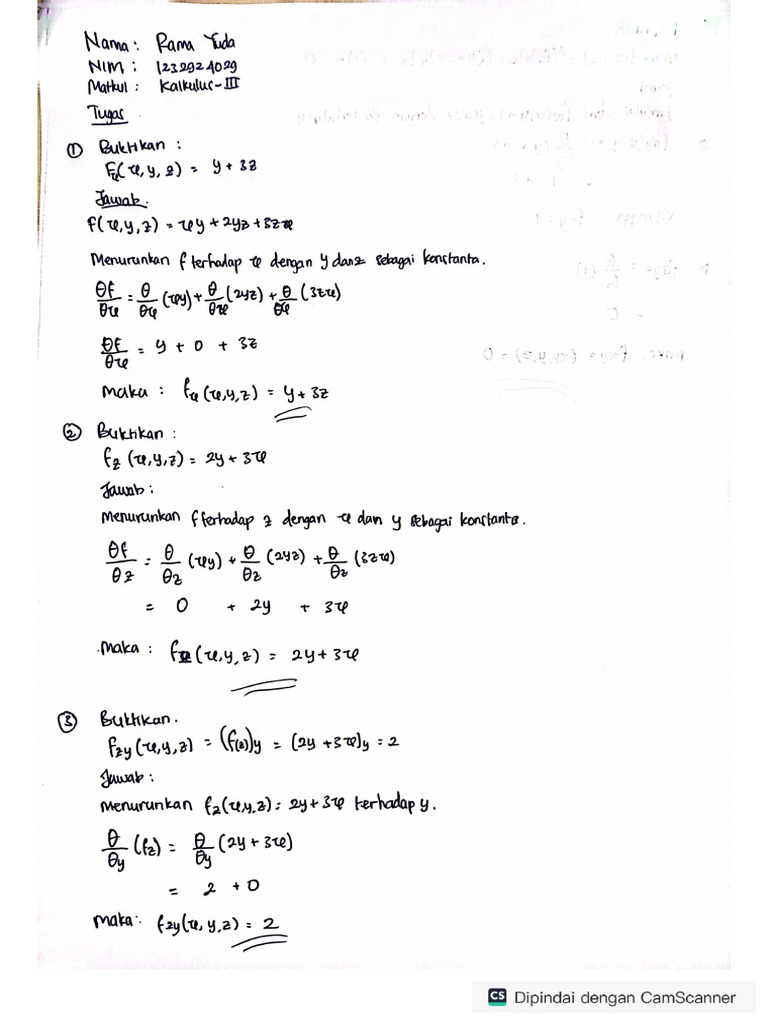 Nama : Rama Yuda
NIM : 1232924029
Matkul : Kalkulus-III
Tugas .
① Buktikan :
Fx(x, y, z) = y + 3z
Jawab.
f(x, y, z) = xy + 2yz + 3zx
Menurunkan f terhadap x dengan y dan z sebagai konstanta.
θf/θx = θ/θx (xy) + θ/θx (2yz) + θ/θx (3zx)
θf/θx = y + 0 + 3z
Maka : fx (x,y,z) = y + 3z
② Buktikan :
fz (x,y,z) = 2y + 3x
Jawab :
Menurunkan f terhadap z dengan x dan y sebagai konstanta.
θf/θz = θ/θz (xy) + θ/θz (2yz) + θ/θz (3zx)
= 0 + 2y + 3x
Maka : fz (x,y,z) = 2y + 3x
③ Buktikan.
fzy (x,y,z) = (f(z))y = (2y + 3x)y = 2
Jawab :
Menurunkan fz(x,y,z) = 2y + 3x terhadap y.
θ/θy (fz) = θ/θy (2y + 3x)
= 2 + 0
Maka : fzy(x, y, z) = 2
CS Dipindai dengan CamScanner